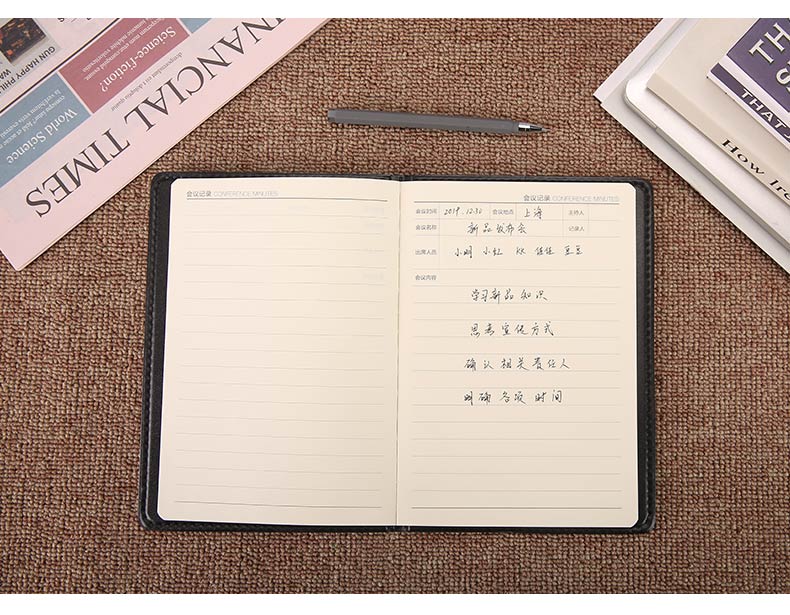 FINANCIAL TIMES
Science-fiction?
World Science
GUN HAPPY PHIL
WAR
会议记录 CONFERENCE MINUTES
会议记录 CONFERENCE MINUTES
会议时间 2019.12.30 会议地点 上海 主持人
会议名称 新品发布会 记录人
出席人员 小明 小红 KK 佳佳 豆豆
会议内容
学习新品知识
思考宣传方式
确认相关责任人
明确各项时间
TH
THAT'S
How Iro